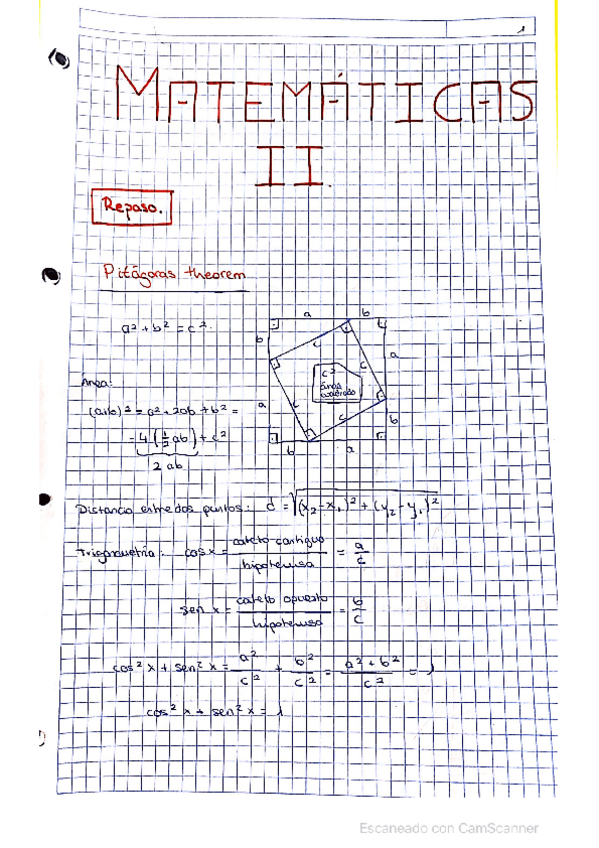 1
MATEMÁTICAS
II.
Repaso.
Pitágoras theorem
a² + b² = c².
a b
b c a
c² área cuadrado
c
a c c b
b a
Área:
(a+b)² = a² + 2ab + b² =
= 4(½ab) + c²
2ab
Distancia entre dos puntos: d = √(x₂-x₁)² + (y₂-y₁)²
Trigonometría: cos x = cateto contiguo / hipotenusa = a/c
sen x = cateto opuesto / hipotenusa = b/c
cos² x + sen² x = a²/c² + b²/c² = a²+b²/c² = 1
cos² x + sen² x = 1
Escaneado con CamScanner